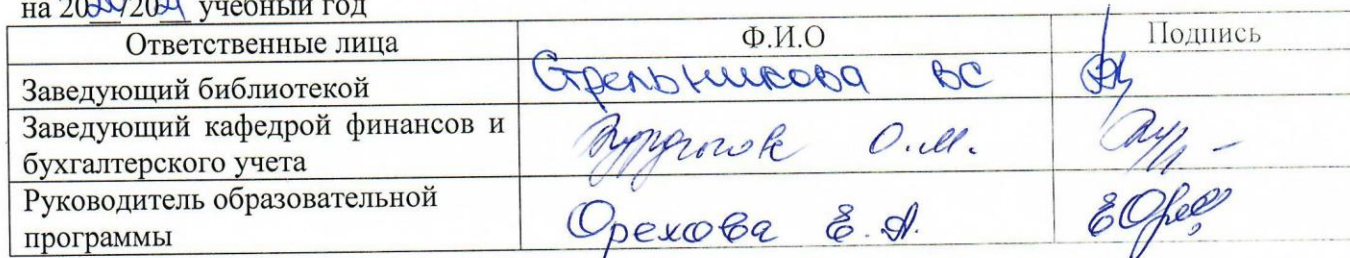 на 20 /20 учебный год
Ответственные лица Ф.И.О Подпись
Заведующий библиотекой Стрельникова ВС
Заведующий кафедрой финансов и
бухгалтерского учета О.М.
Руководитель образовательной
программы Орехова Е.А.